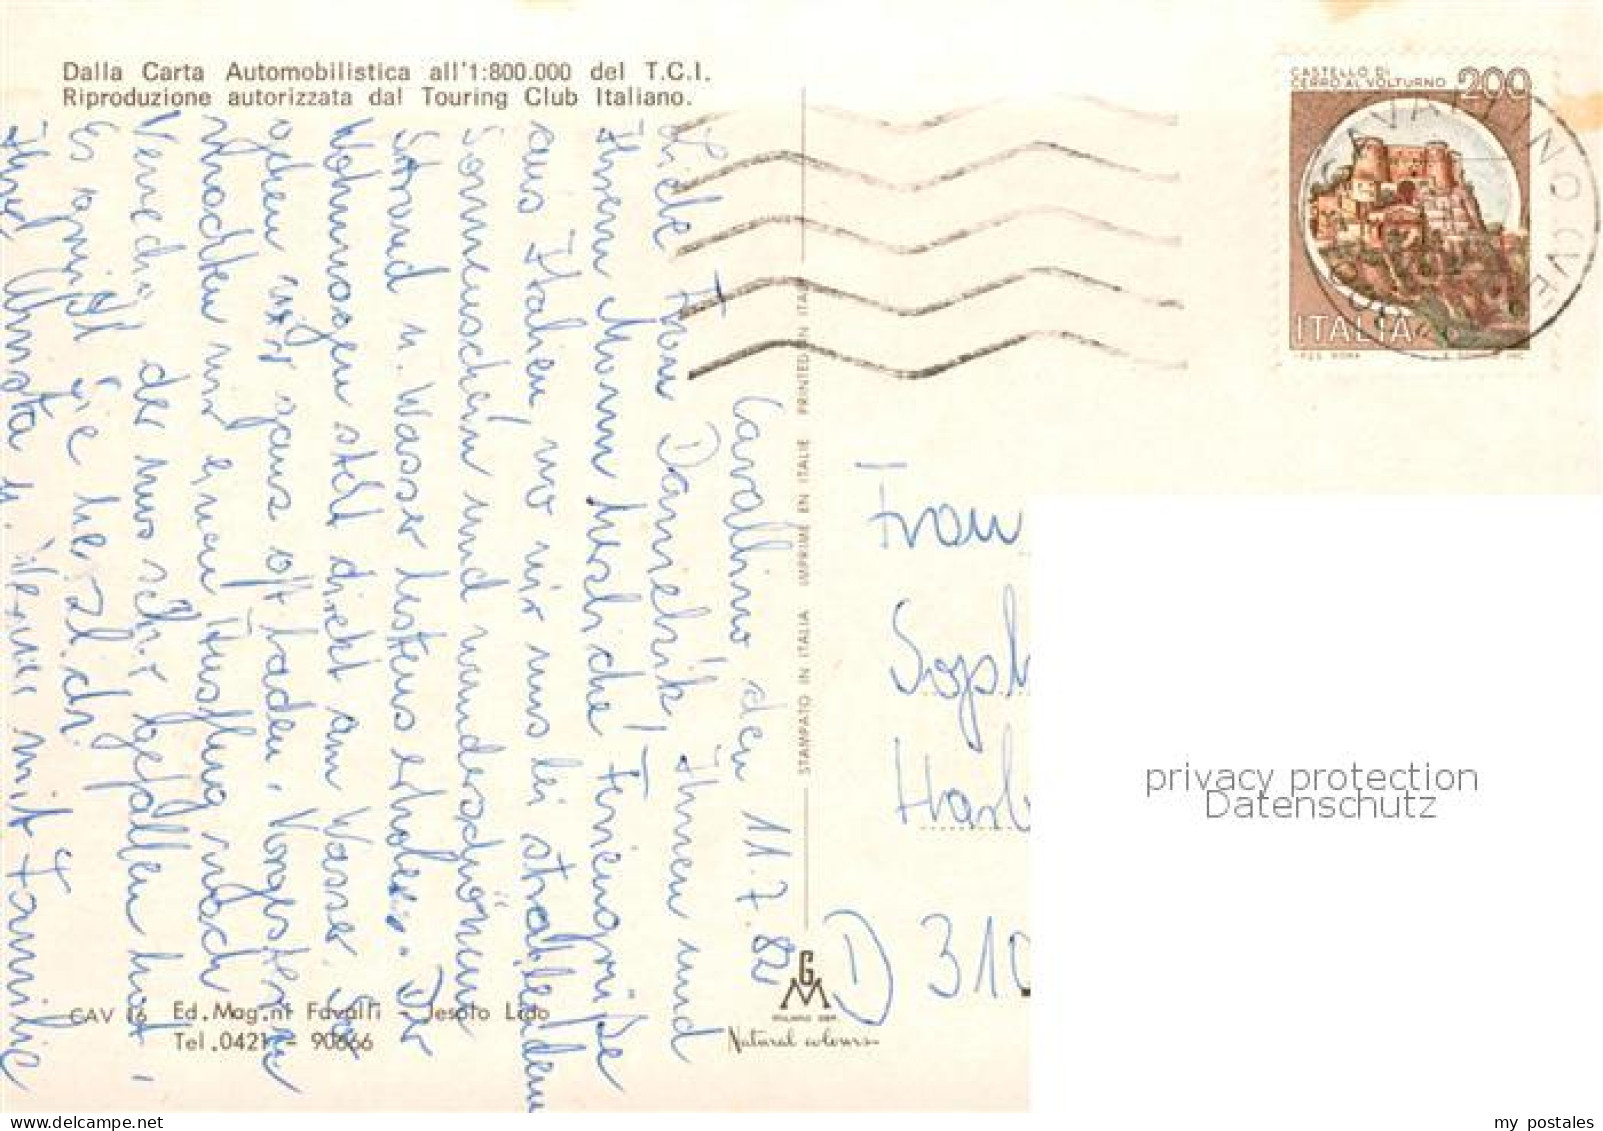 Dalla Carta Automobilistica all'1:800.000 del T.C.I.
Riproduzione autorizzata dal Touring Club Italiano.
CASTELLO DI
CERRO AL VOLTURNO
200
ITALIA
CAVALLINO (VE)
Cavallino, den 11.7.82
Liebe Frau Danielzik, Ihnen und
Ihrem Mann herzliche Feriengrüße
aus Italien, wo wir uns bei strahlendem
Sonnenschein und wunderschönem
Strand u. Wasser bestens erholen. Der
Wohnwagen steht direkt am Wasser. So
gehen wir ganz oft baden. Vorgestern
machten wir einen Ausflug nach
Venedig, der uns sehr gefallen hat.
Es grüßt Sie herzlich
Ihre mit Familie
STAMPATO IN ITALIA IMPRIMÉ EN ITALIE PRINTED IN ITALY
Frau
Soph
Harb
D 310
CAV 16 Ed. Mag.ni Favalli - Jesolo Lido
Tel. 0421 - 90666
GM
MILANO
Natural colours
privacy protection
Datenschutz
my postales